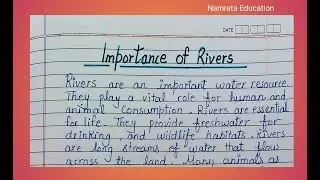 Namrata Education
DATE
Importance of Rivers
Rivers are an important water resource.
They play a vital role for human and
animal consumption. Rivers are essential
for life. They provide freshwater for
drinking, and wildlife habitats. Rivers
are long streams of water that flow
across the land. Many animals as